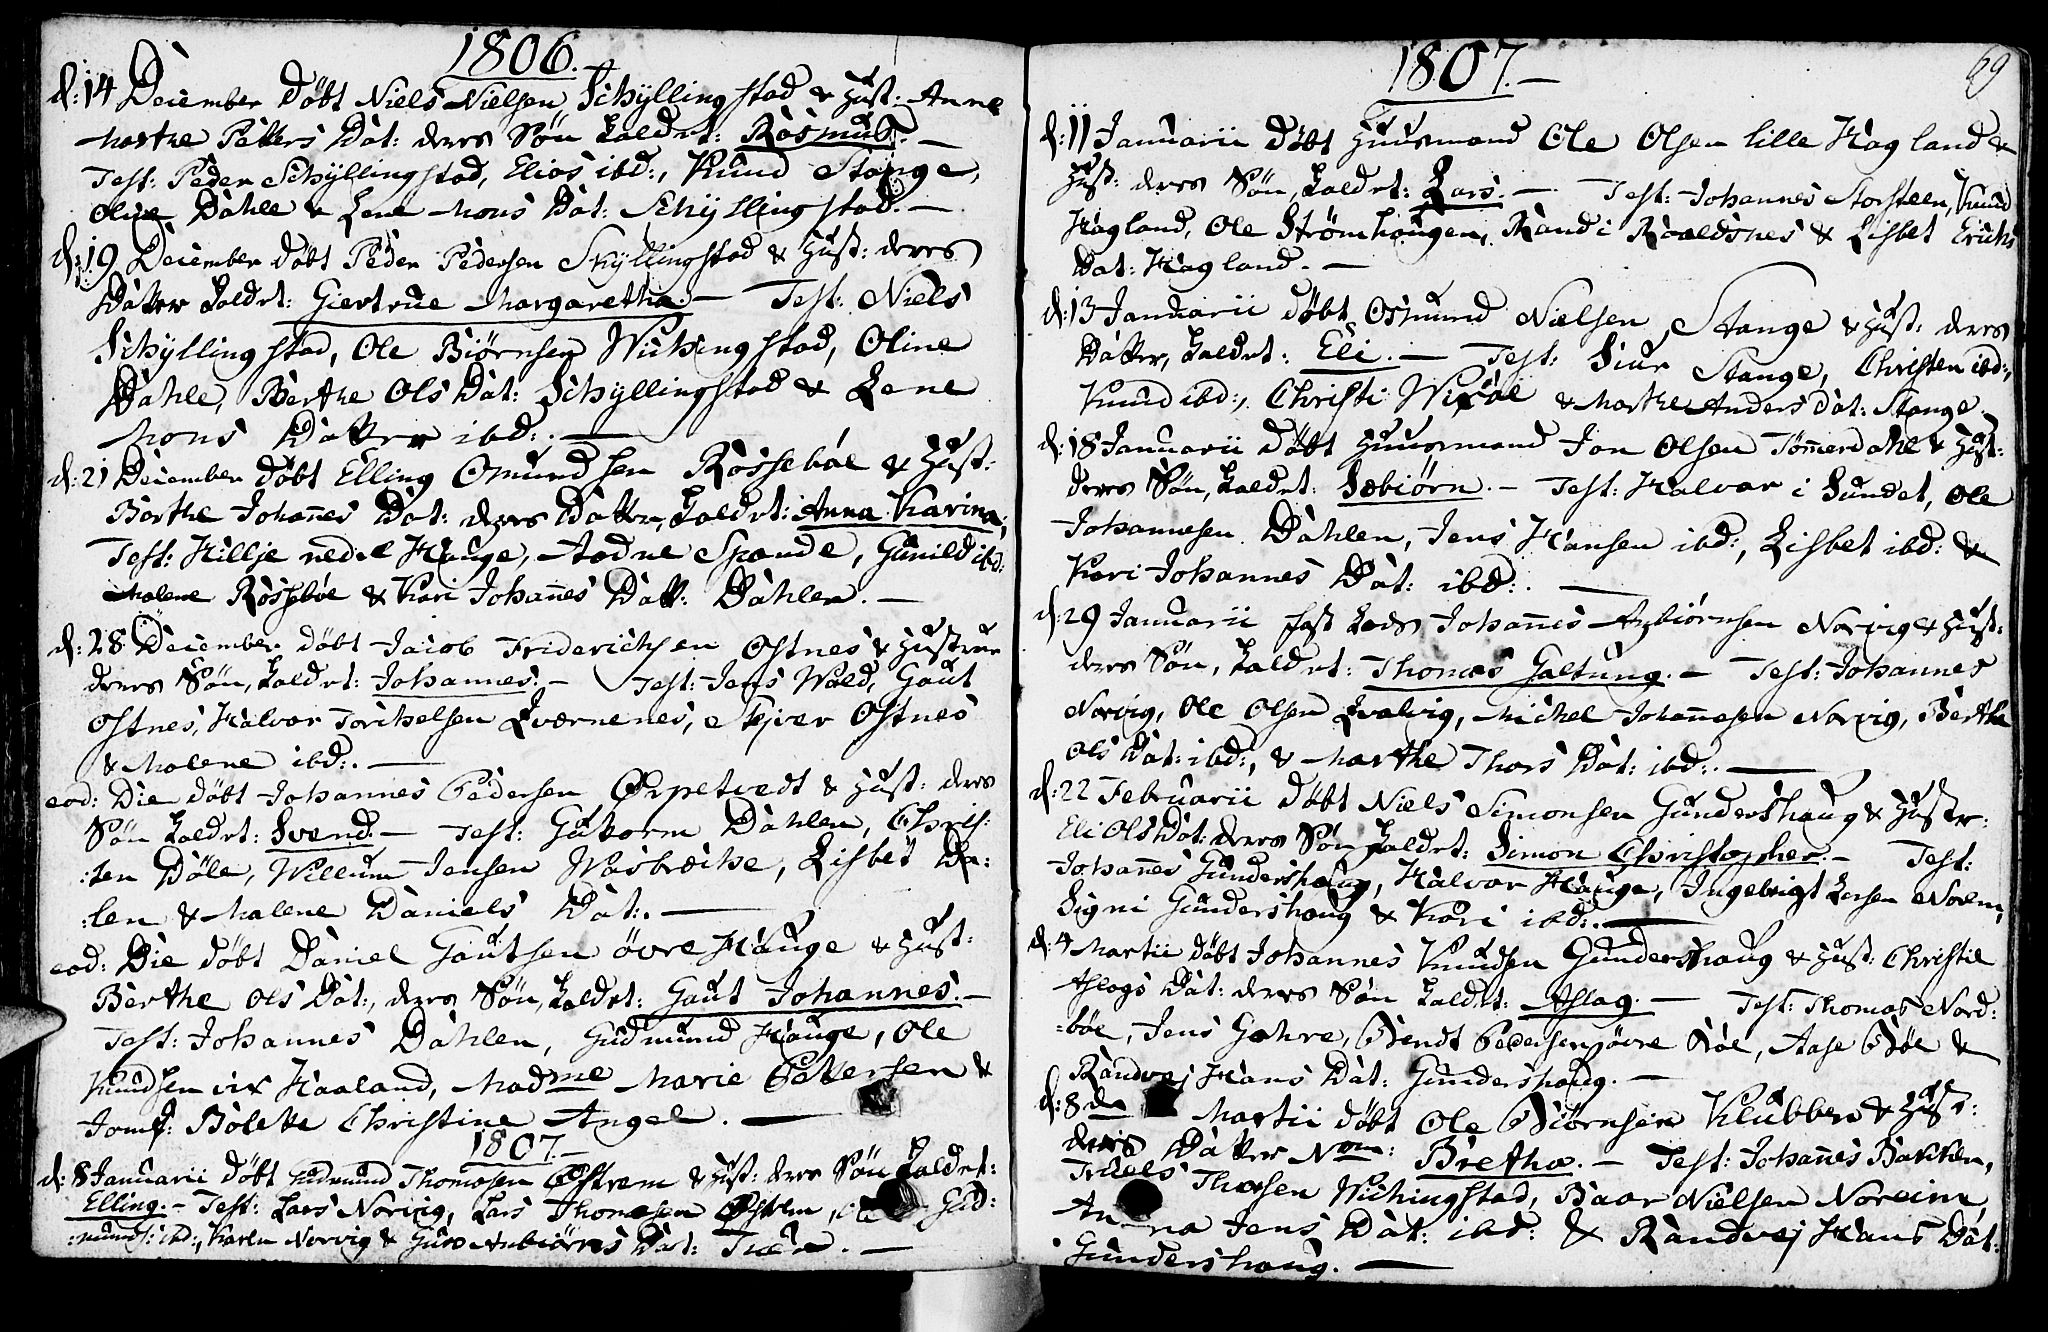 1806.
d: 14 December döbt Niels Nielsen Schyllingstad & Hust: Anne
Marthe Petters Dat: deres Sön kaldet: Rasmus. —
Test: Peder Schyllingstad, Elias ibd:, Knud Stange,
Oline Dahle & Lene Mons Dat: Schyllingstad. —
d: 19 December döbt Peder Pedersen Skyllingstad & Hust: deres
Datter kaldet: Giertrue Margaretha. — Test: Niels
Schyllingstad, Ole Biörnsen Wichingstad, Oline
Dahle, Berthe Ols Dat: Schyllingstad & Lene
Mons Datter ibd:. —
d: 21 December döbt Elling Omundsen Rosseböe & Hust:
Barthe Johanes Dat: deres Datter, kaldet: Anna Karina,
Test: Killje nedre Hauge, Aadne Spande, Gunild ibd:
Malene Rosseböe & Kari Johanes Datt: Dahlen. —
d: 28 December döbt Jacob Friderichsen Ostnes & Hustrue
deres Sön, kaldet: Johannes. — Test: Jens Wald, Gaut
Ostnes, Halvar Torchelsen Qværnenes, Skjver Ostnes
& Malene ibd:. —
eod: Die döbt Johannes Pedersen Ørpetvedt & Hust: deres
Sön kaldet: Svend. — Test: Gutorm Dahlen, Chris:
:ten Döle, Willum Jensen Wasbrecke, Lisbet Da:
:len & Malene Daniels Dat:. —
eod: Die döbt Daniel Gautsen övre Hauge & Hust:
Berthe Ols Dat:, deres Sön, kaldet: Gaut Johannes. —
Test: Johannes Dahlen, Gudmund Hauge, Ole
Knudsen Haaland, Madme Marie Petersen &
Jomf: Bolette Christine Angel. —
1807. —
d: 8 Januarii döbt Gudmund Thomasen Østrem & Hust: deres Sön kaldet:
Elling. — Test: Lars Norvig, Lars Thomasen Østrem, Gud:
:munds: ibd:, Karen Norvig & Guro Anbiörns Dat: —
1807. —
69
d: 11 Januarii döbt Huusmand Ole Olsen lille Hagland &
Hust: deres Sön, kaldet: Lars. — Test: Johannes Storsteen, Knud
Hagland, Ole Strömhaugen, Randi Roaldsnes & Lisbet Erichs
Dat: Hagland. —
d: 13 Januarii döbt Osmund Nielsen Stange & Hust: deres
Datter, kaldet: Eli. — Test: Siur Stange, Christen ibd:,
Knud ibd:, Christi & Marthe Anders Dat: Stange.
d: 18 Januarii döbt Huusmand Jon Olsen Tömerdahl & Hust:
deres Sön, kaldet: Sæbiörn. — Test: Halvar i Sundet, Ole
Johannesen Dahlen, Jens Hansen ibd:, Lisbet ibd: &
Kari Johannes Dat: ibd:. —
d: 29 Januarii Johanes Asbiörnsen Norvig & Hust:
deres Sön, kaldet: Thomas Galtung. — Test: Johannes
Norvig, Ole Olsen Qvalvig, Michel Johanesen Norvig, Berthe
Ols Dat: ibd:, & Marthe Thors Dat: ibd:. —
d: 22 Februarii döbt Niels Simonsen Gundershaug & Hustr:
Eli Ols Dat: deres Sön kaldet: Simon Christopher. — Test:
Johanes Gundershaug, Halvor Hauge, Ingebrigt Larsen
Signi Gundershaug & Kari ibd:. —
d: 4 Martii döbt Johannes Knudsen Gundershaug & Hust: Christie
Aslags Dat: deres Sön kaldet: Aslag. — Test: Thomas Nord:
:böe, Jens Gahre, Bendt Pedersen övre Böe, Aase Böe &
Randvej Hans Dat: Gundershaug. —
d: 8de Martii döbt Ole Biörnsen Klubben & Hust:
deres Datter Nom: Bretha. — Test: Johanes Bakken,
Wichingstad, Baar Nielsen Noreim,
Anna Jens Dat: ibd: & Randvej Hans Dat:
Gundershaug. —